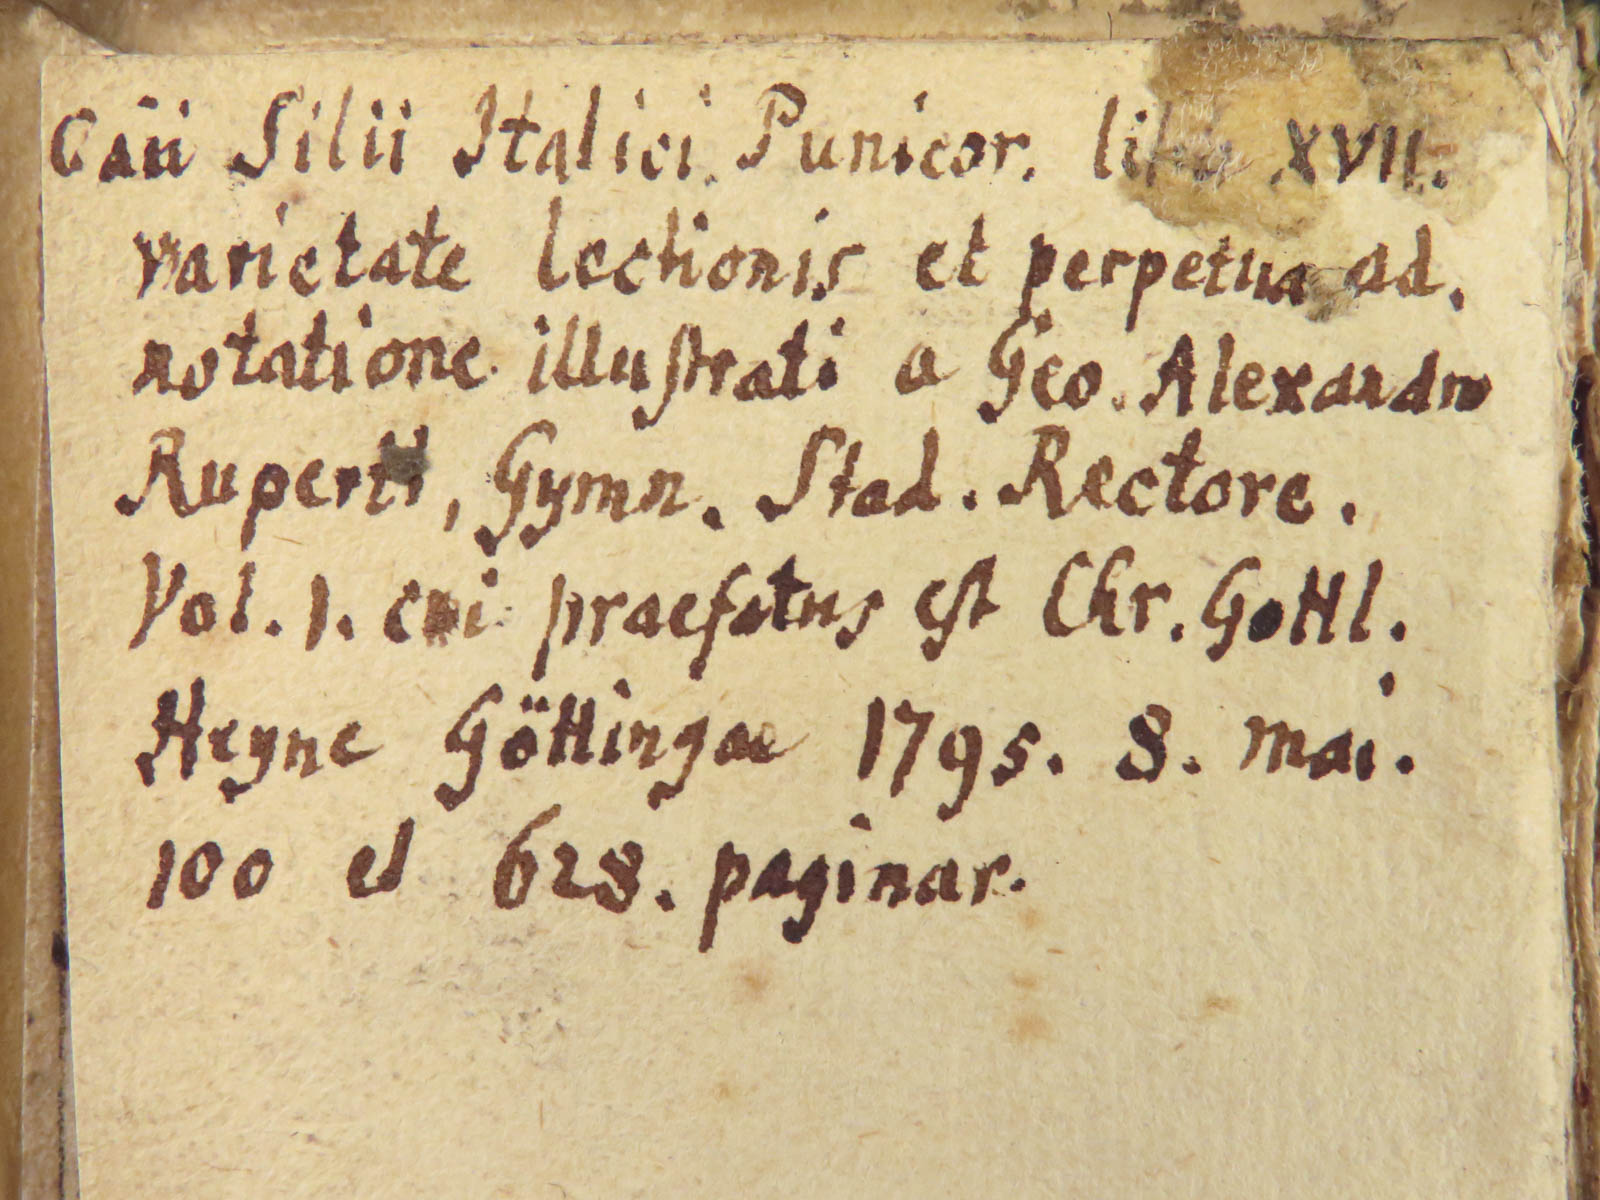 Caii Silii Italici Punicor. libr XVII.
varietate lectionis et perpetua ad,
notatione illuſtrati a Geo. Alexandro
Ruperti, Gymn. Stad. Rectore.
Vol. 1. cui praefatus eſt Chr. Gottl.
Heyne Göttingae 1795. 8. mai.
100 et 628. paginar.